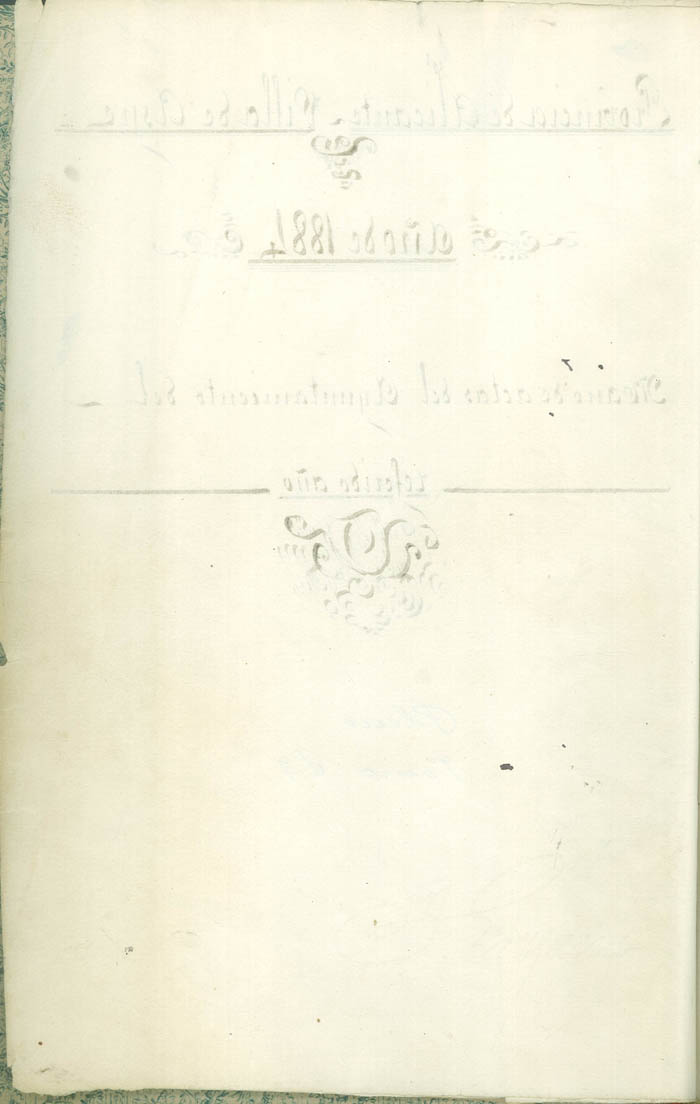 Provincia de Alicante Villa de Aspe
Año de 1884
Mano de actas del Ayuntamiento del
referido año